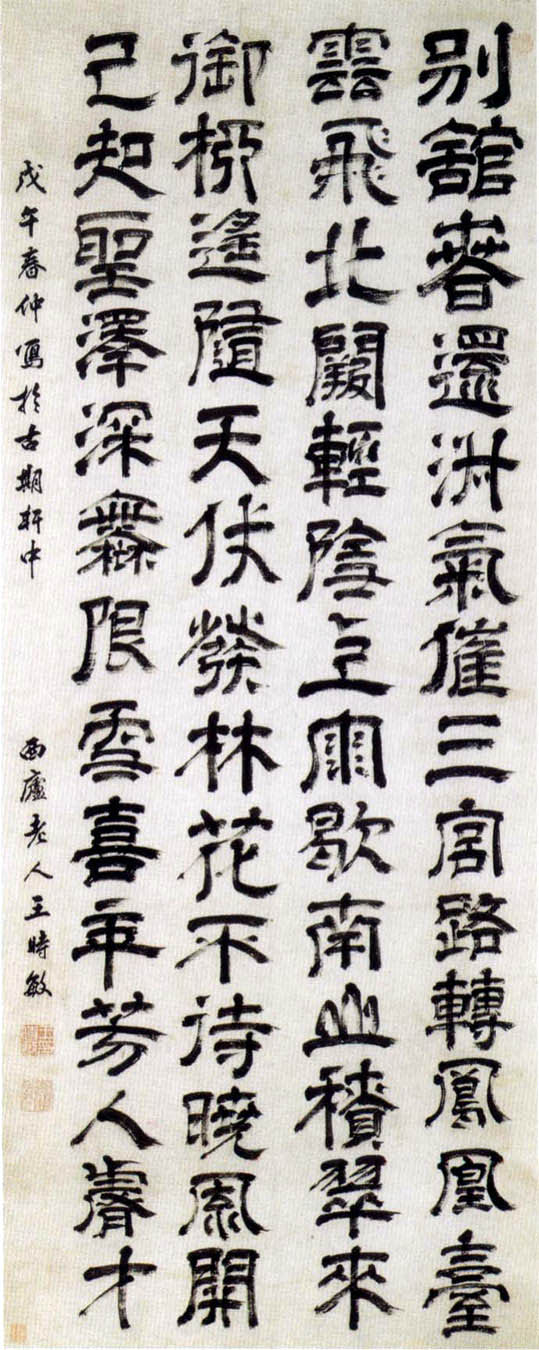 別館春還淑氣催三宮路轉鳳凰臺
雲飛北闕輕陰雨歇南山積翠來
御柳遙隨天仗發林花不待曉風開
已知聖澤深無限喜年芳入睿才
戊午春仲寫於古期軒中 西廬老人王時敏